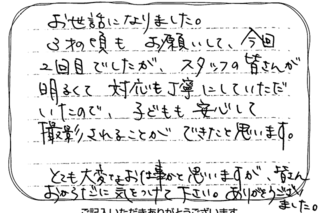 お世話になりました。
3才の頃も お願いして、今回
2回目でしたが、スタッフの皆さんが
明るくて 対応も丁寧にしていただ
いたので、子どもも 安心して
撮影されることが できたと思います。
とても大変なお仕事かと思いますが、皆さん
おからだに気をつけて下さい。ありがとうござい
ました。
ご記入いただきありがとうございます